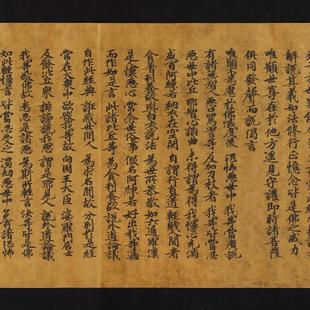 解說其義如法修行正憶念皆是佛之威力
唯願世尊在於他方遙見守護即時諸菩薩
俱同發聲而說偈言
唯願不為慮 於佛滅度後 恐怖惡世中 我等當廣說
有諸無智人 惡口罵詈等 及加刀杖者 我等皆當忍
惡世中比丘 邪智心諂曲 未得謂為得 我慢心充滿
或有阿練若 納衣在空閑 自謂行真道 輕賤人間者
貪著利養故 與白衣說法 為世所恭敬 如六通羅漢
是人懷惡心 常念世俗事 假名阿練若 好出我等過
而作如是言 此諸比丘等 為貪利養故 說外道論議
自作此經典 誑惑世間人 為求名聞故 分別於是經
常在大衆中 欲毀我等故 向國王大臣 婆羅門居士
及餘比丘衆 誹謗說我惡 謂是邪見人 說外道論議
我等敬佛故 悉忍是諸惡 為斯所輕言 汝等皆是佛
如此輕慢言 皆當忍受之 濁劫惡世中 多有諸恐怖